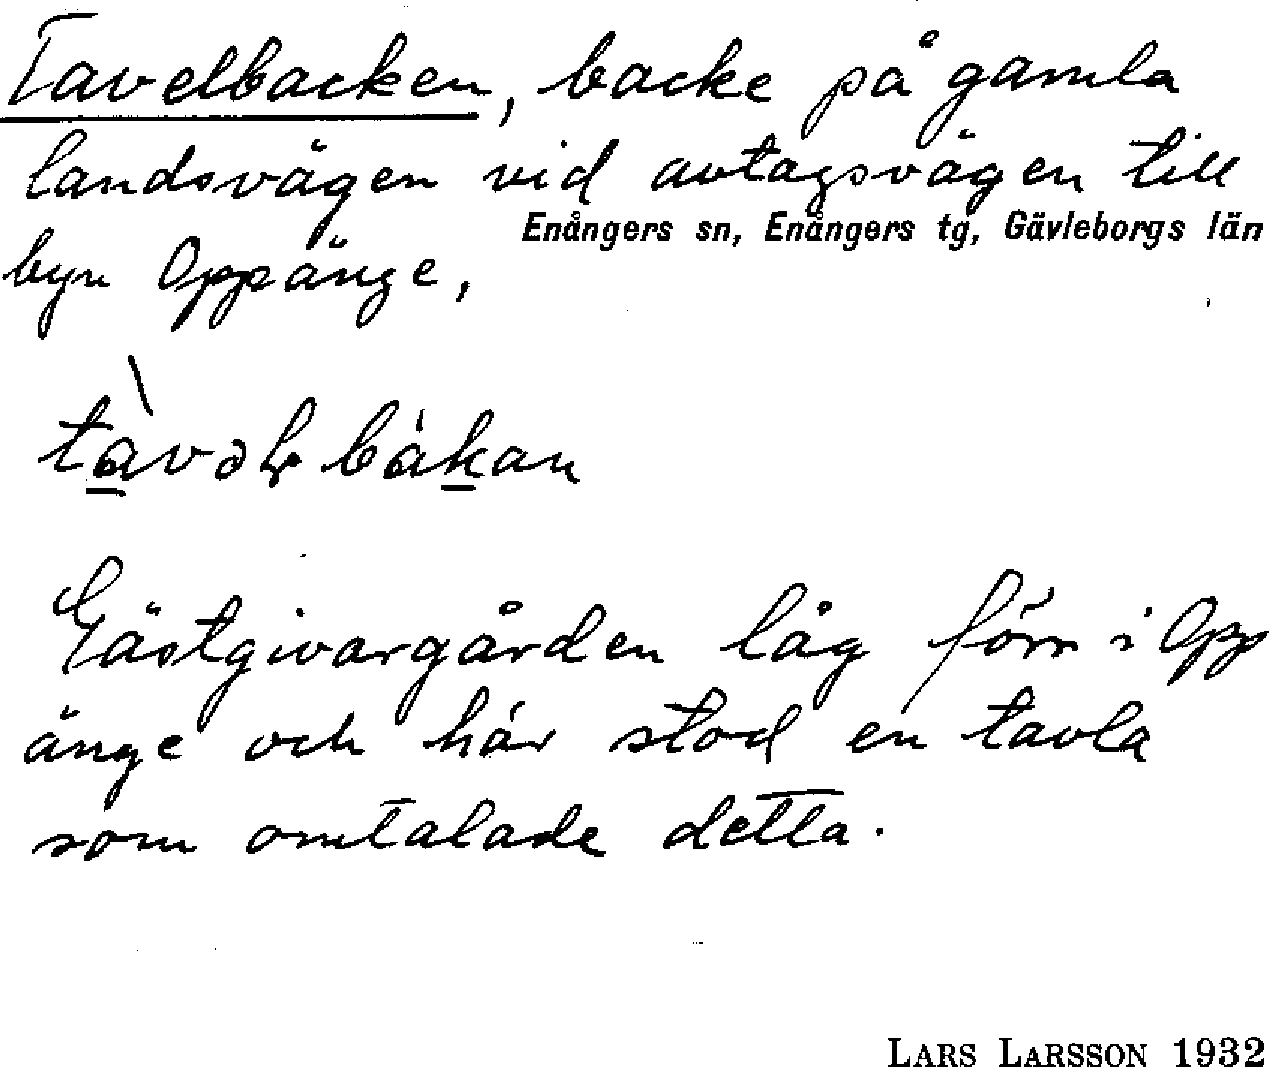 Tavelbacken, backe på gamla
landsvägen vid avtagsvägen till
Enångers sn, Enångers tg, Gävleborgs län
byn Oppänge,
tàvəḷbákan
Gästgivargården låg förr i Opp
änge och här stod en tavla
som omtalade detta.
LARS LARSSON 1932